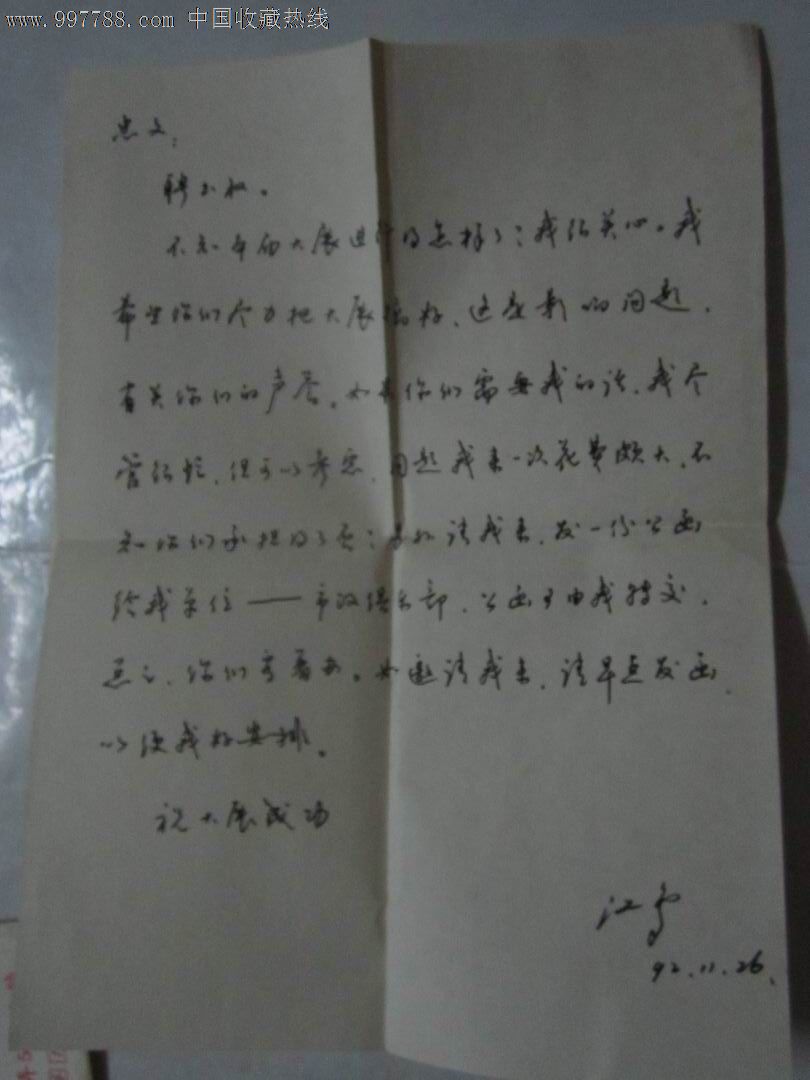 www.997788.com 中国收藏热线
忠文：
聘书收。
不知年画大展进行得怎样了？我很关心。我
希望你们尽力把大展搞好，这是影响问题，
有关你们的声誉。如果你们需要我的话，我尽
管很忙，但可以考虑，问题我来一次花费颇大，不
知你们承担得了否？另外请我来，发一份公函
给我单位——市政俱乐部，公函可由我转交。
总之，你们看着办。如邀请我来，请早点发函，
以便我好安排。
祝大展成功
江
92.11.26.